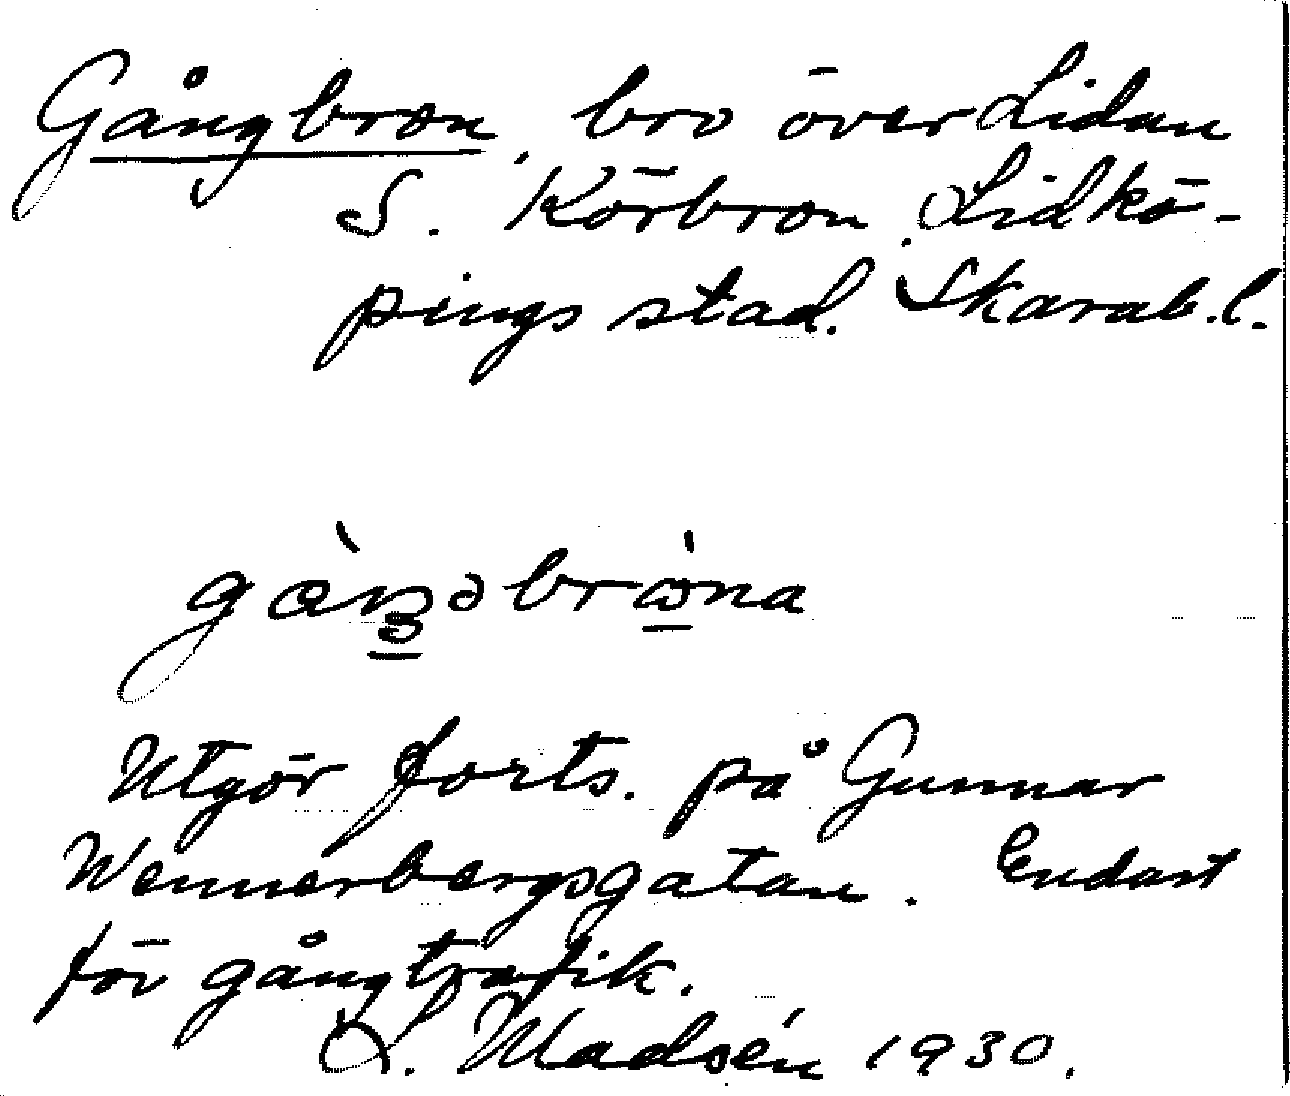 Gångbron, bro över Lidan
S. Körbron. Lidkö-
pings stad. Skarab.l.
Utgör forts. på Gunnar
Wennerbergsgatan. Endast
för gångtrafik.
L. Madsén 1930.